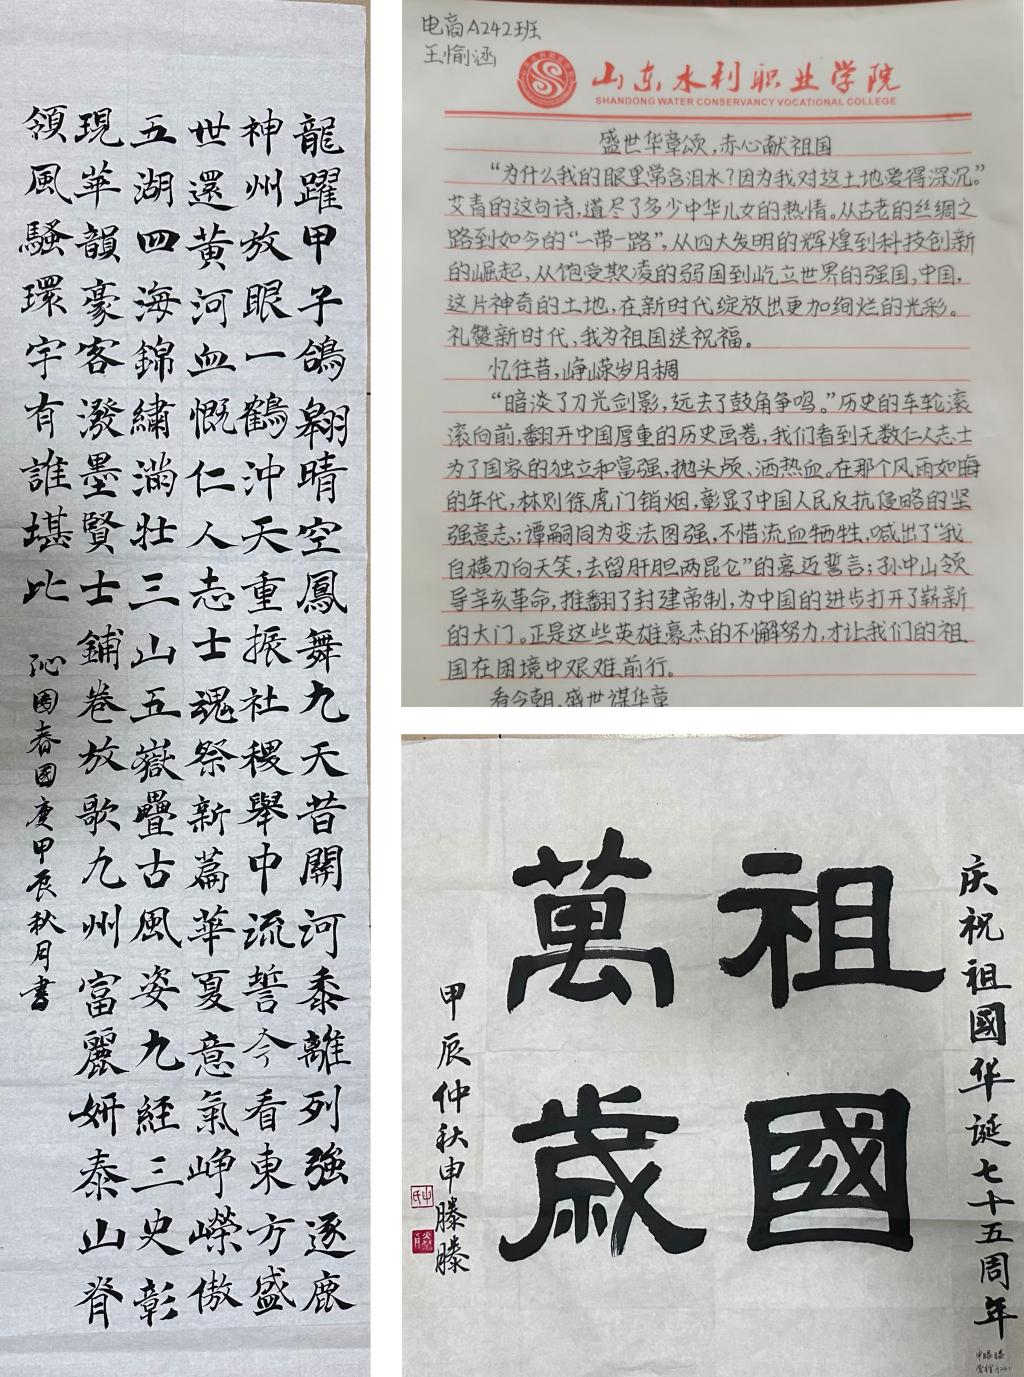 龍躍甲子鴿翱晴空鳳舞九天昔關河黍離列強逐鹿
神州放眼一鶴沖天重振社稷舉中流誓今看東方盛
世還黃河血慨仁人志士魂祭新篇華夏意氣崢嶸傲
五湖四海錦繡滿壯三山五嶽疊古風姿九經三史彰
現華韻豪客潑墨賢士鋪卷放歌九州富麗妍泰山脊
領風騷環宇有誰堪比 沁園春國慶甲辰秋月書
电商A242班
王愉涵
山东水利职业学院
SHANDONG WATER CONSERVANCY VOCATIONAL COLLEGE
盛世华章颂,赤心献祖国
“为什么我的眼里常含泪水?因为我对这土地爱得深沉。”
艾青的这句诗,道尽了多少中华儿女的热情。从古老的丝绸之
路到如今的“一带一路”,从四大发明的辉煌到科技创新
的崛起,从饱受欺凌的弱国到屹立世界的强国,中国,
这片神奇的土地,在新时代绽放出更加绚烂的光彩。
礼赞新时代,我为祖国送祝福。
忆往昔,峥嵘岁月稠
“暗淡了刀光剑影,远去了鼓角争鸣。”历史的车轮滚
滚向前,翻开中国厚重的历史画卷,我们看到无数仁人志士
为了国家的独立和富强,抛头颅、洒热血。在那个风雨如晦
的年代,林则徐虎门销烟,彰显了中国人民反抗侵略的坚
强意志;谭嗣同为变法图强,不惜流血牺牲,喊出了“我
自横刀向天笑,去留肝胆两昆仑”的豪迈誓言;孙中山领
导辛亥革命,推翻了封建帝制,为中国的进步打开了崭新
的大门。正是这些英雄豪杰的不懈努力,才让我们的祖
国在困境中艰难前行。
看今朝,盛世谋华章
庆祝祖國华诞七十五周年
祖國
萬歲
甲辰仲秋申滕滕